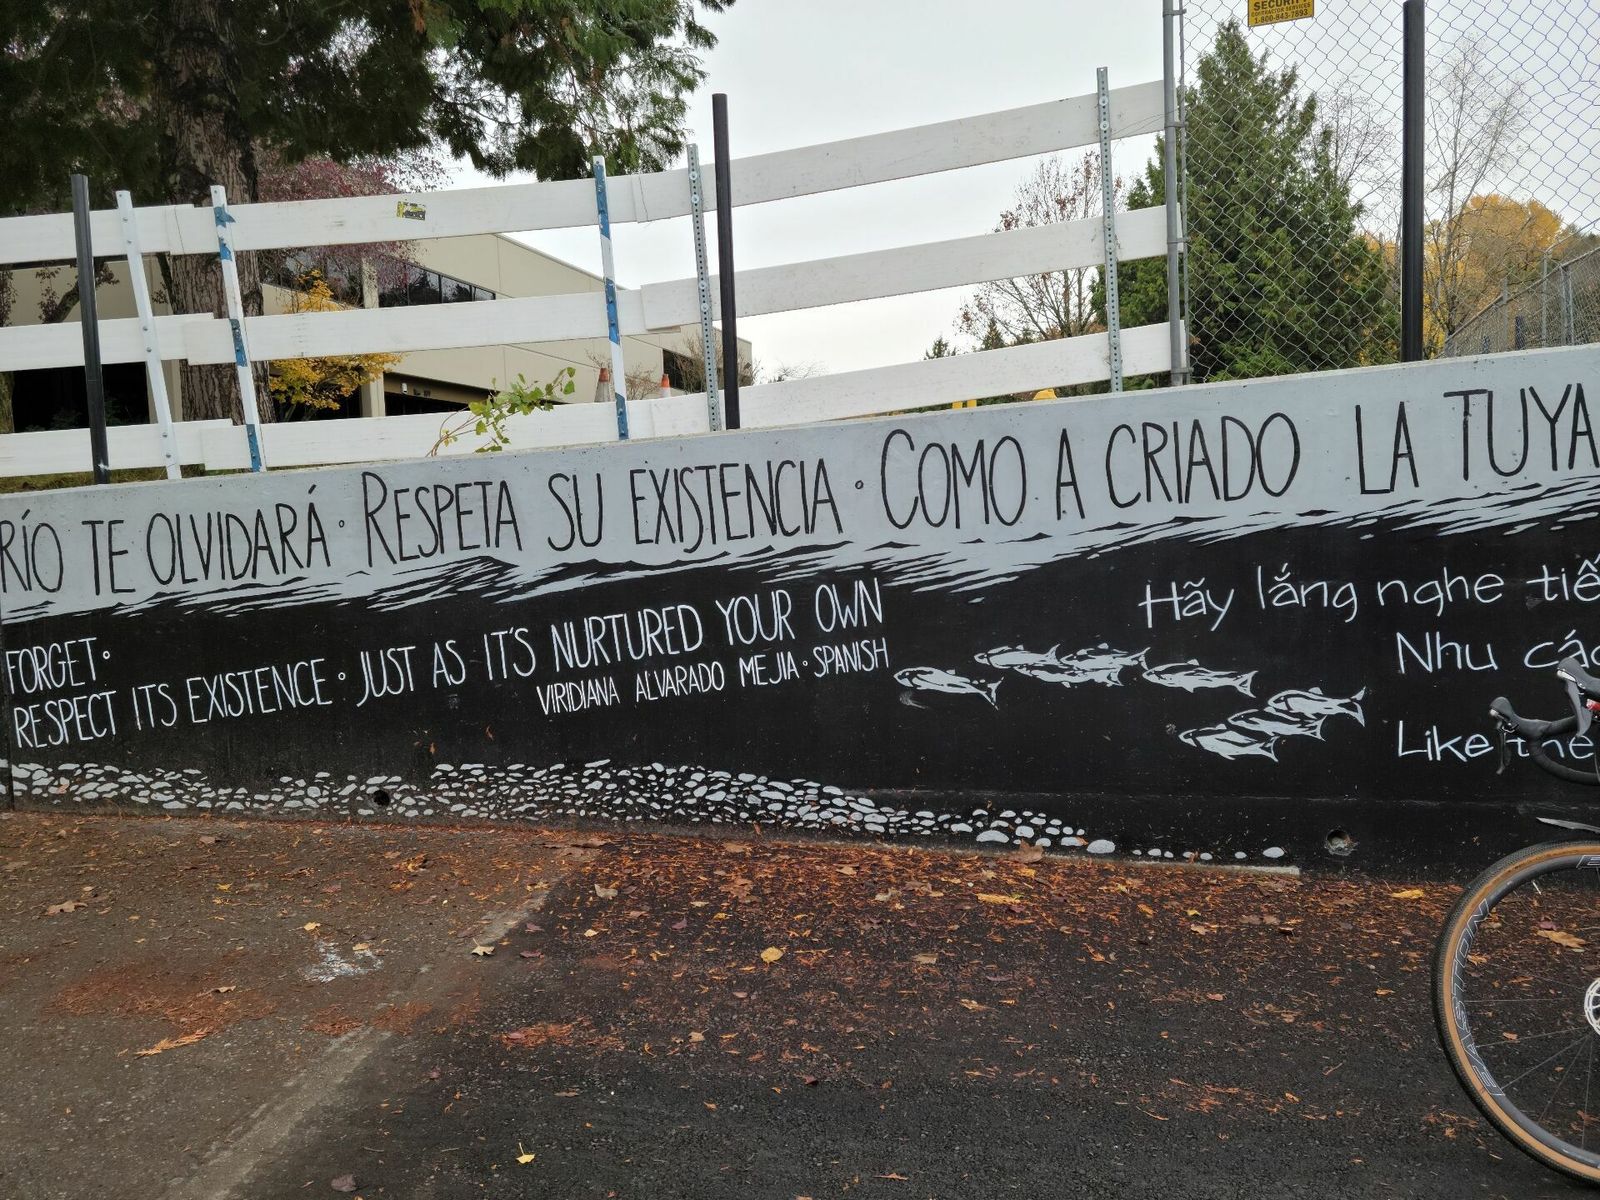 SECURITY
CONTRACTOR SERVICES
1-800-943-7893
RÍO TE OLVIDARÁ • RESPETA SU EXISTENCIA • COMO A CRIADO LA TUYA
FORGET •
RESPECT ITS EXISTENCE • JUST AS IT'S NURTURED YOUR OWN
VIRIDIANA ALVARADO MEJIA • SPANISH
Hãy lắng nghe tiế
Nhu các
Like the
EASTON